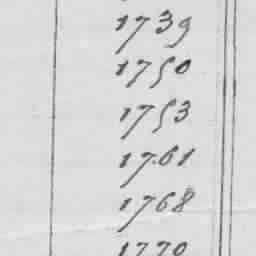 1739
1750
1753
1761
1768
1770